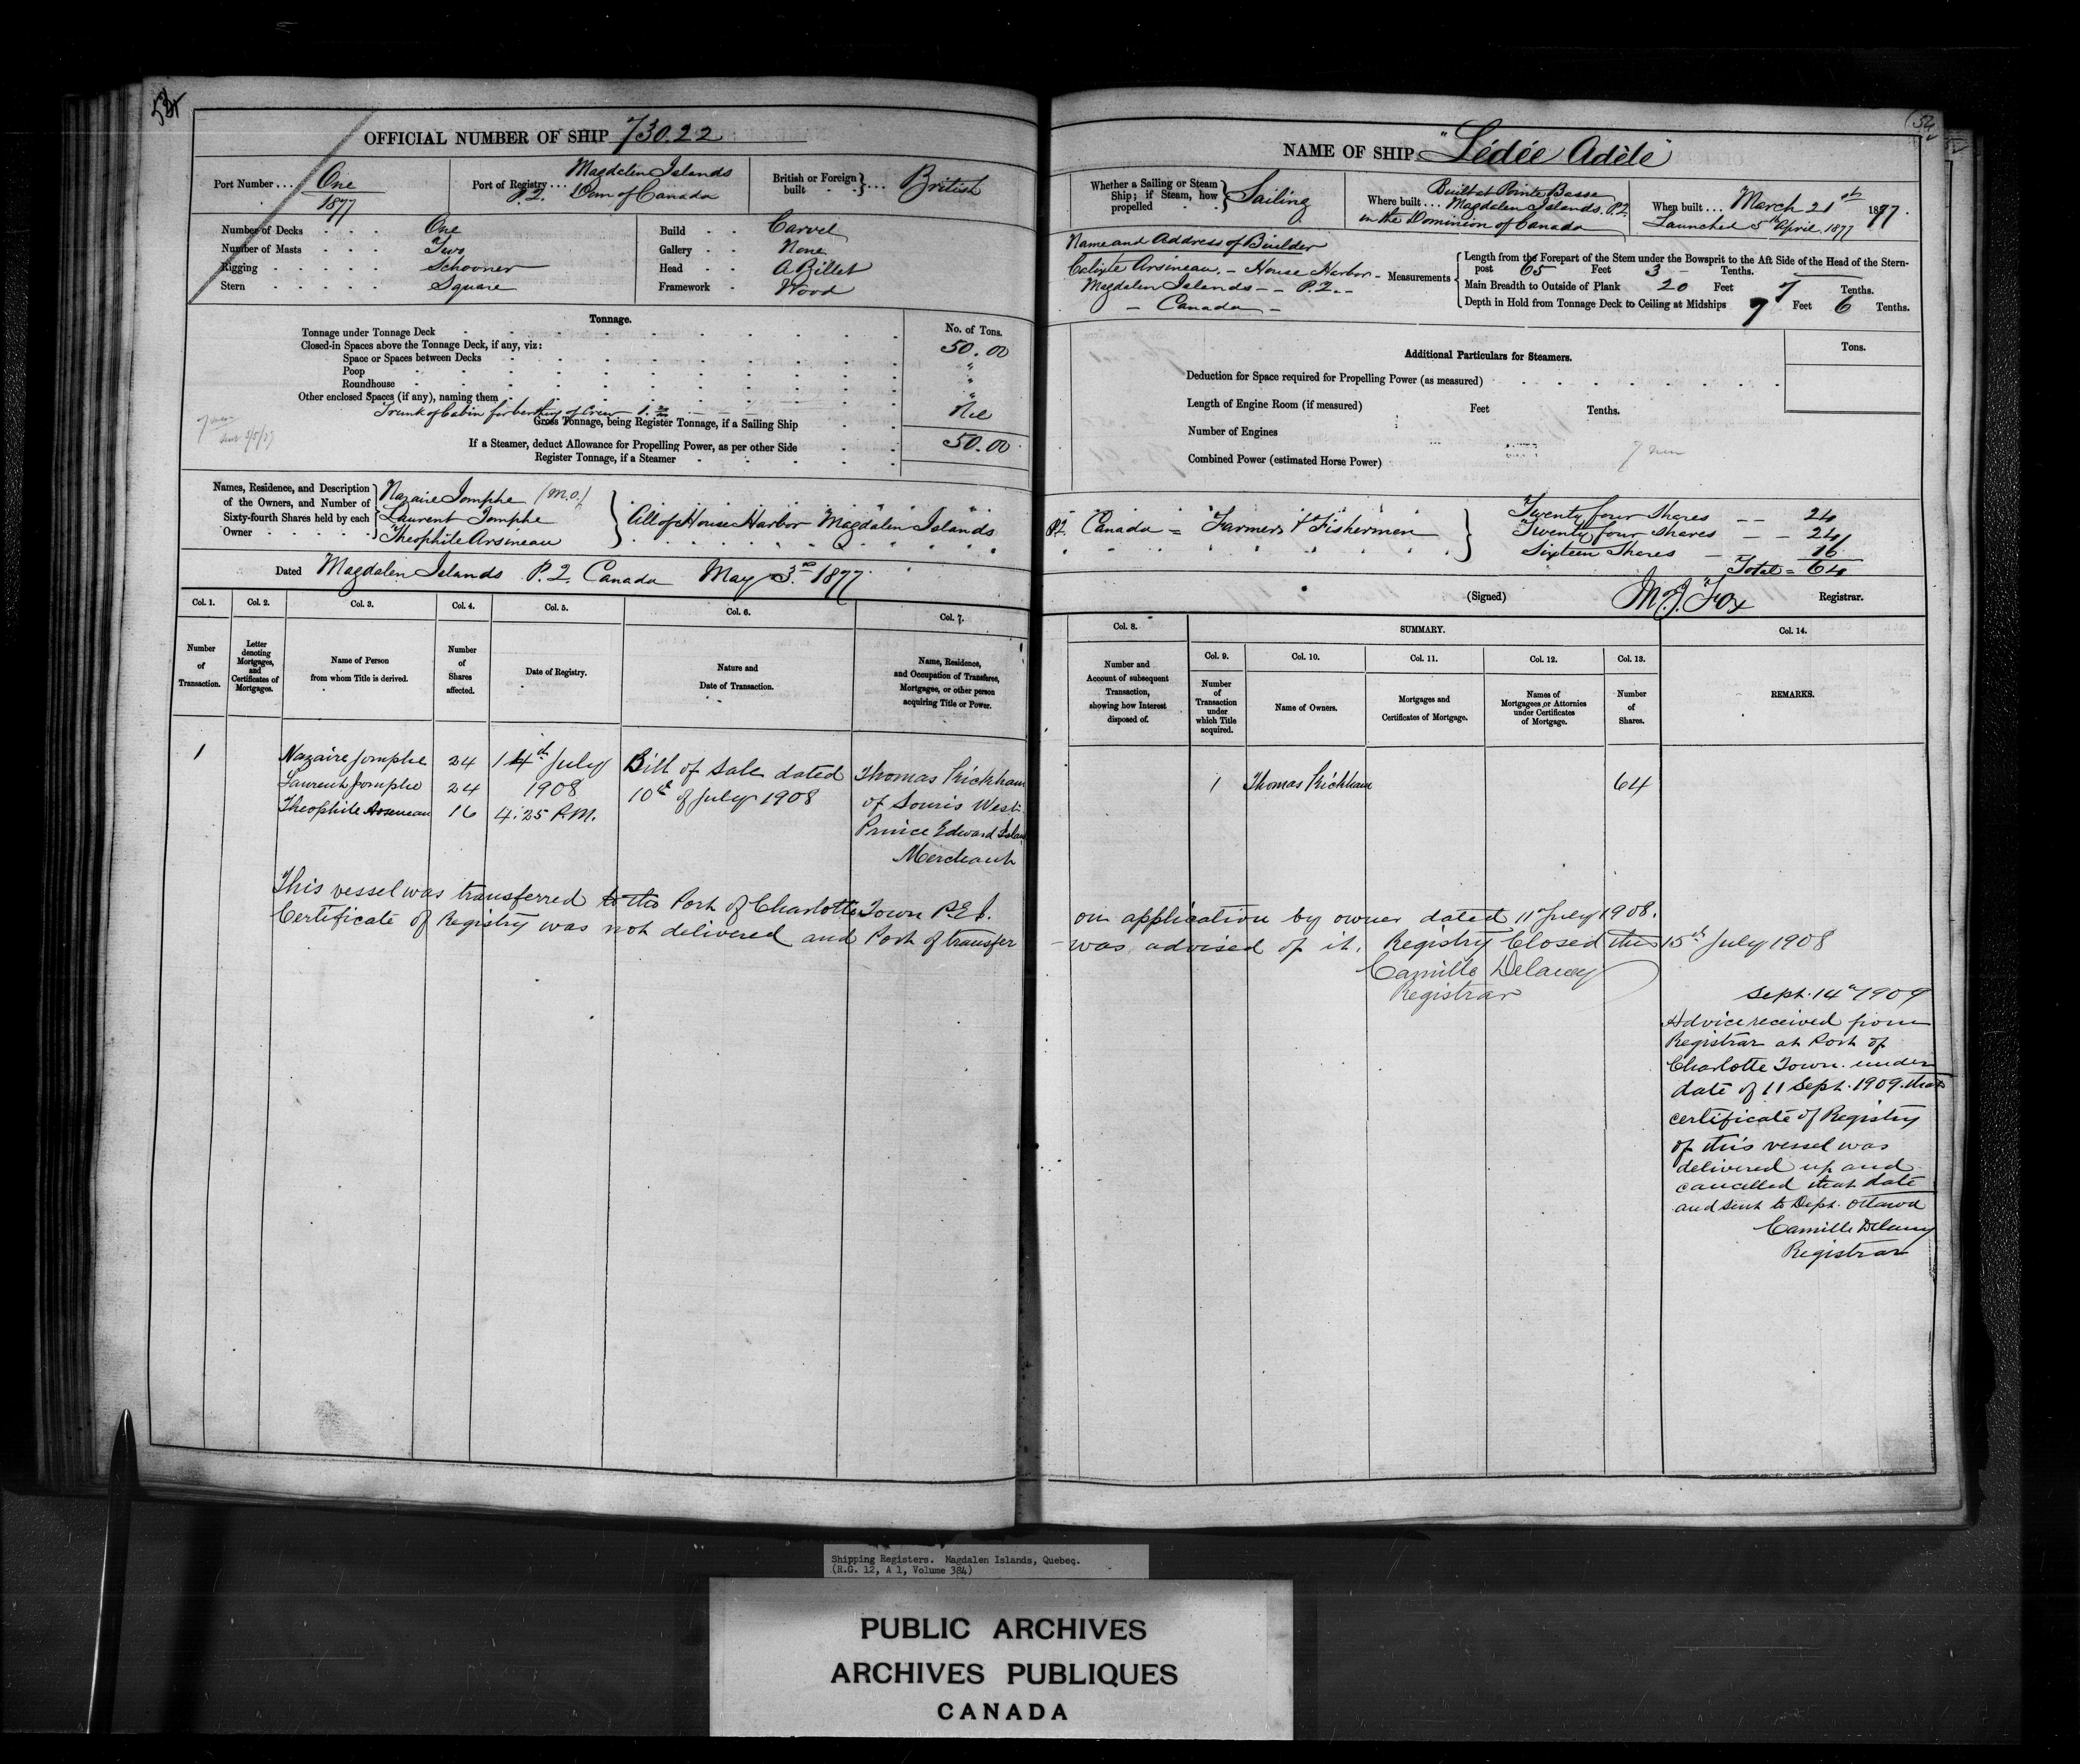 OFFICIAL NUMBER OF SHIP 73022
Port Number . . . One 1877
Port of Registry . . . Magdalen Islands P.Q. Dom of Canada
British or Foreign built . . } . . . British
Number of Decks . . . One
Number of Masts . . . Two
Rigging . . . . . Schooner
Stern . . . . . Square
Build . . Carvel
Gallery . . None
Head . . A Billet
Framework . Wood
Tonnage.
No. of Tons.
Tonnage under Tonnage Deck 50.00
Closed-in Spaces above the Tonnage Deck, if any, viz:
Space or Spaces between Decks "
Poop "
Roundhouse "
Other enclosed Spaces (if any), naming them
Trunk of Cabin for berthing of Crew Nil
Gross Tonnage, being Register Tonnage, if a Sailing Ship
If a Steamer, deduct Allowance for Propelling Power, as per other Side 50.00
Register Tonnage, if a Steamer
Names, Residence, and Description of the Owners, and Number of Sixty-fourth Shares held by each Owner
Nazaire Jomphe (M.O.)
Laurent Jomphe
Theophile Arsineau
} All of House Harbor Magdalen Islands
Dated Magdalen Islands P.Q. Canada May 3rd 1877
Col. 1. Col. 2. Col. 3. Col. 4. Col. 5. Col. 6. Col. 7.
Number of Transaction.
Letter denoting Mortgages, and Certificates of Mortgages.
Name of Person from whom Title is derived.
Number of Shares affected.
Date of Registry.
Nature and Date of Transaction.
Name, Residence, and Occupation of Transferee, Mortgagee, or other person acquiring Title or Power.
1 Nazaire Jomphe 24 14th July Bill of Sale dated Thomas Kickham
Laurent Jomphe 24 1908 10th of July 1908 of Souris West
Theophile Arseneau 16 4:25 P.M. Prince Edward Island
Merchant
This vessel was transferred to the Port of Charlotte Town P.E.I.
Certificate of Registry was not delivered and Port of transfer
NAME OF SHIP "Lédée Adèle"
Whether a Sailing or Steam Ship; if Steam, how propelled . . } Sailing
Where built . . . Built at Pointe Basse Magdalen Islands. P.Q. in the Dominion of Canada
When built . . . March 21st 1877.
Launched 5th April 1877
Name and Address of Builder
Calixte Arsineau. – House Harbor –
Magdalen Islands – – P.Q. – –
– Canada –
Measurements
Length from the Forepart of the Stem under the Bowsprit to the Aft Side of the Head of the Stern-
post 65 Feet 3 – Tenths.
Main Breadth to Outside of Plank 20 Feet 7 Tenths.
Depth in Hold from Tonnage Deck to Ceiling at Midships 7 Feet 6 Tenths.
Additional Particulars for Steamers.
Tons.
Deduction for Space required for Propelling Power (as measured)
Length of Engine Room (if measured) Feet Tenths.
Number of Engines
Combined Power (estimated Horse Power)
7 men
P.Q. Canada = Farmers & Fishermen }
Twenty four Shares – – 24
Twenty four Shares – – 24
Sixteen Shares – 16
Total = 64
(Signed) M. J. Fox Registrar.
Col. 8. SUMMARY. Col. 14.
Col. 9. Col. 10. Col. 11. Col. 12. Col. 13.
Number and Account of subsequent Transaction, showing how Interest disposed of.
Number of Transaction under which Title acquired.
Name of Owners.
Mortgages and Certificates of Mortgage.
Names of Mortgagees or Attornies under Certificates of Mortgage.
Number of Shares.
REMARKS.
1 Thomas Kickham 64
on application by owner dated 11th July 1908.
was advised of it. Registry Closed this 15th July 1908
Camille Delaney
Registrar
Sept. 14th 1909
Advice received from
Registrar at Port of
Charlotte Town. under
date of 11 Sept. 1909. that
certificate of Registry
of this vessel was
delivered up and
cancelled that date
and sent to Dept. Ottawa
Camille Delaney
Registrar
Shipping Registers. Magdalen Islands, Quebec.
(R.G. 12, A 1, Volume 384)
PUBLIC ARCHIVES
ARCHIVES PUBLIQUES
CANADA